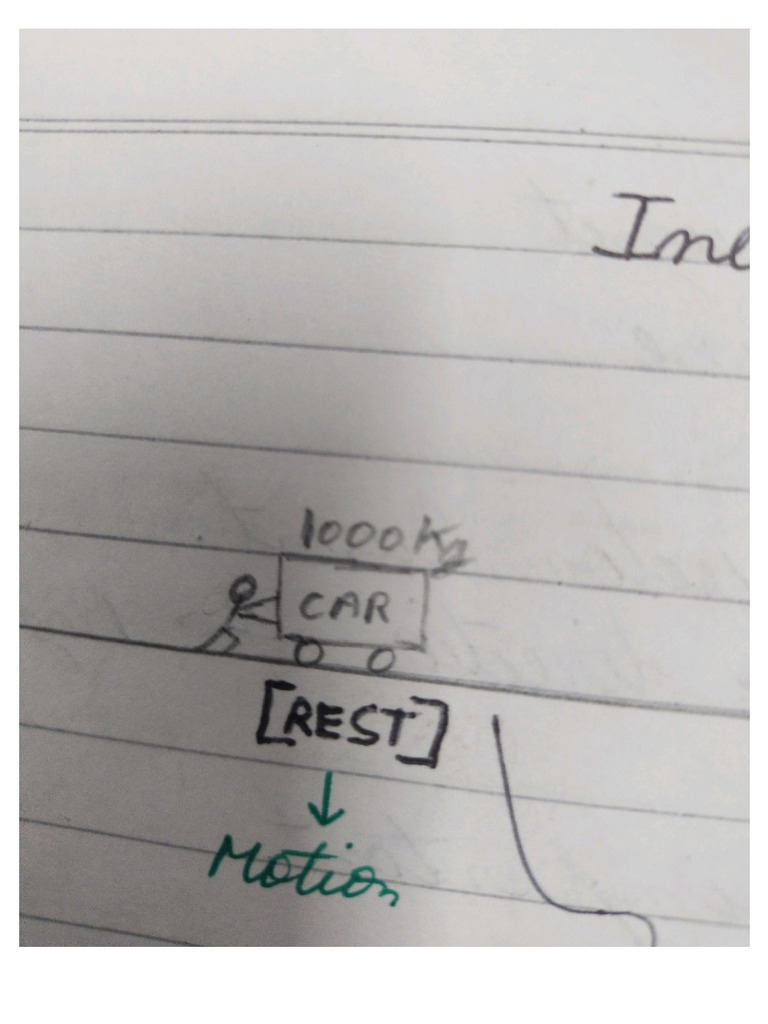 Ine
1000 Kg
CAR
[REST]
Motion